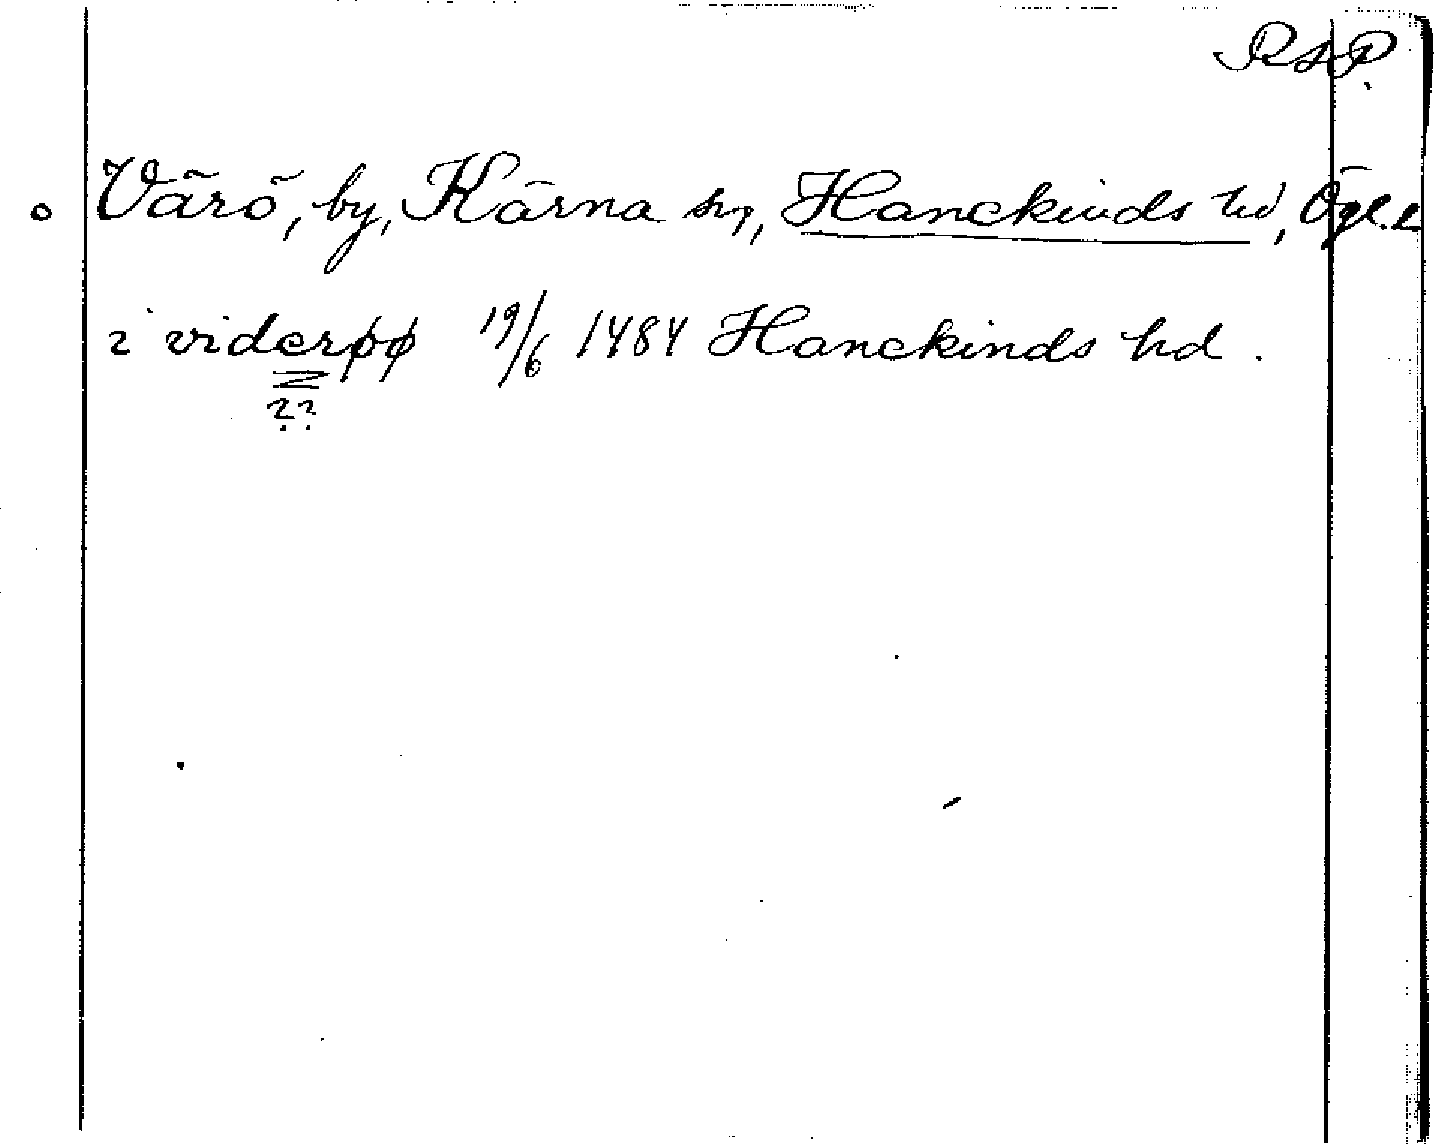 RAP.
o Värö, by, Kärna sn, Hanekinds hd, Ögl.
i viderøø 19/6 1484 Hanekinds hd.
??